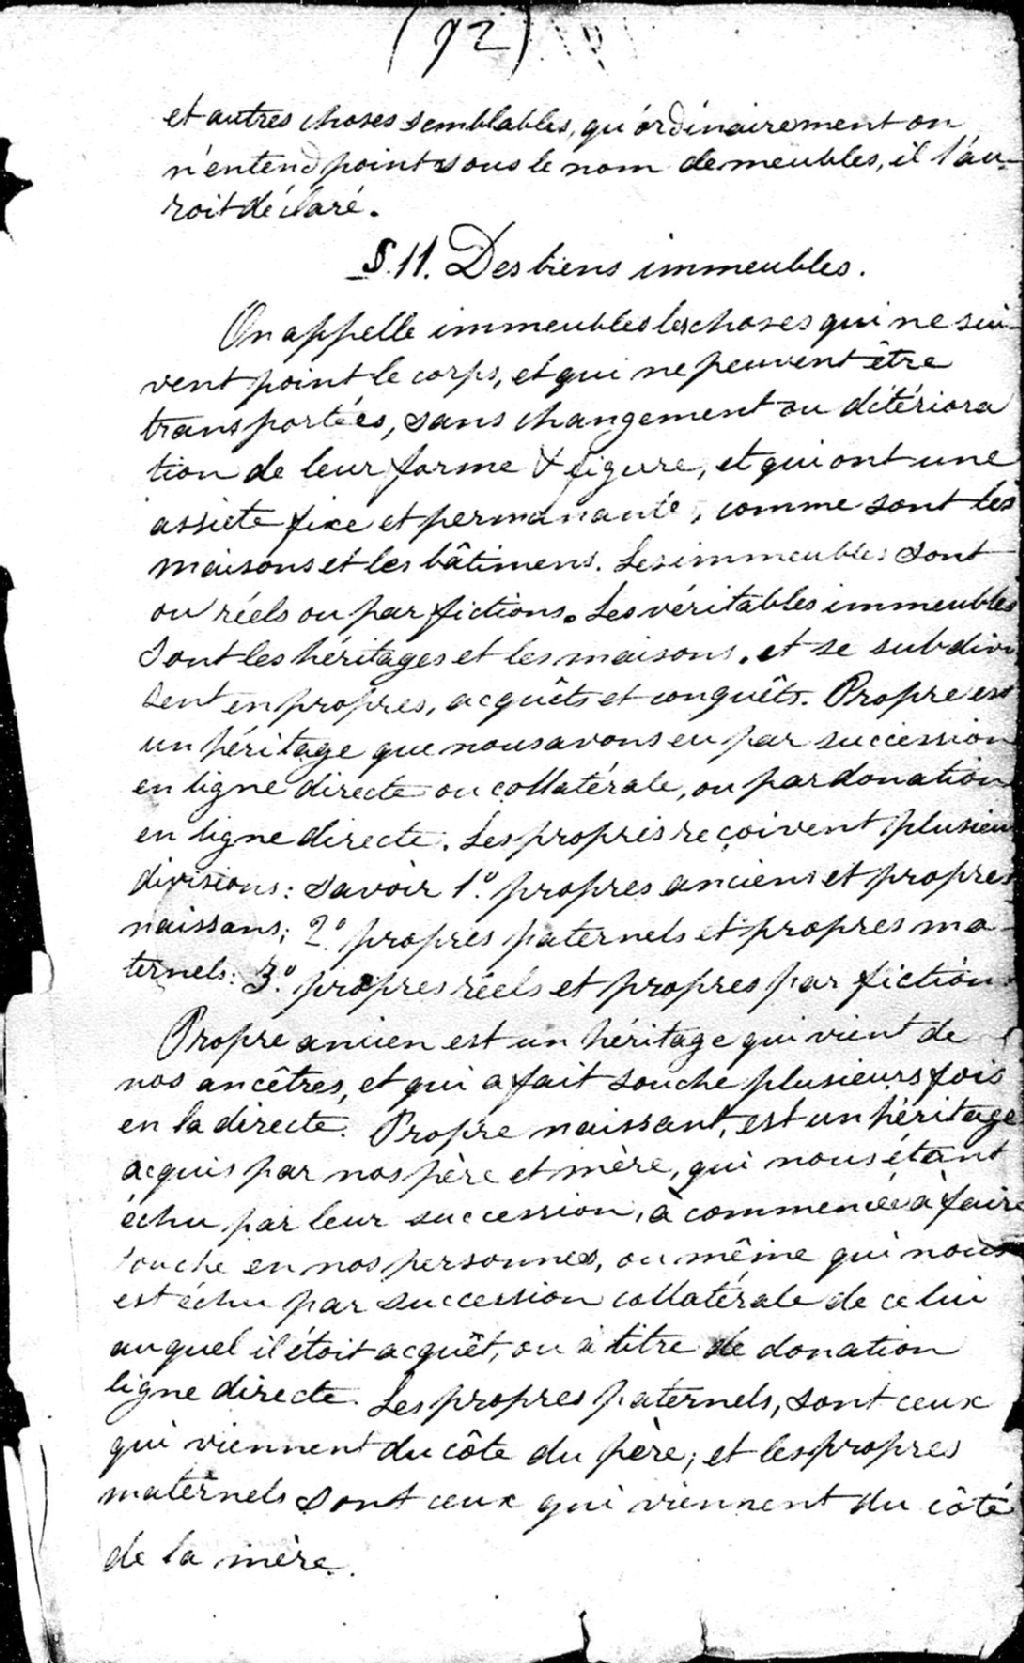 (92)
et autres choses semblables, qu'ordinairement on
n'entend point sous le nom de meubles, il l'au-
roit déclaré.
§. 11. Des biens immeubles.
On appelle immeubles les choses qui ne sui-
vent point le corps, et qui ne peuvent être
transportées, sans changement ou détériora
tion de leur forme & figure, et qui ont une
assiete fixe et permanante, comme sont les
maisons et les bâtimens. Les immeubles sont
ou réels ou par fictions. Les véritables immeubles
sont les héritages et les maisons. et se subdivi
sent en propres, acquêts et conquêts. Propre est
un héritage que nous avons eu par succession
en ligne directe ou collatérale, ou par donation
en ligne directe. Les propres reçoivent plusieurs
divisions: savoir 1.º propres anciens et propres
naissans; 2.º propres paternels et propres ma-
ternels: 3.º propres réels et propres par fiction.
Propre ancien est un héritage qui vient de
nos ancêtres, et qui a fait souche plusieurs fois
en la directe. Propre naissant, est un héritage
acquis par nos père et mère, qui nous étant
échu par leur succession, à commencée à faire
souche en nos personnes, ou même qui nous
est échu par succession collatérale de celui
auquel il étoit acquêt, ou à titre de donation
ligne directe. Les propres paternels, sont ceux
qui viennent du côte du père; et les propres
maternels sont ceux qui viennent du côté
de la mère.